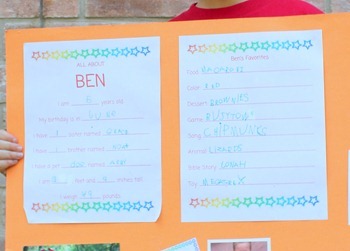 ALL ABOUT
BEN
I am 5 years old
My birthday is in JUNE
I have 1 sister named GRACE
I have 1 brother named NOAH
I have a pet DOG named
I am feet and 9 inches tall
I weigh 49 pounds
Ben's Favorites
Food MACARONI
Color RED
Dessert BROWNIES
Game
Song CHIPMUNKS
Animal LIZARDS
Bible Story JONAH
Toy